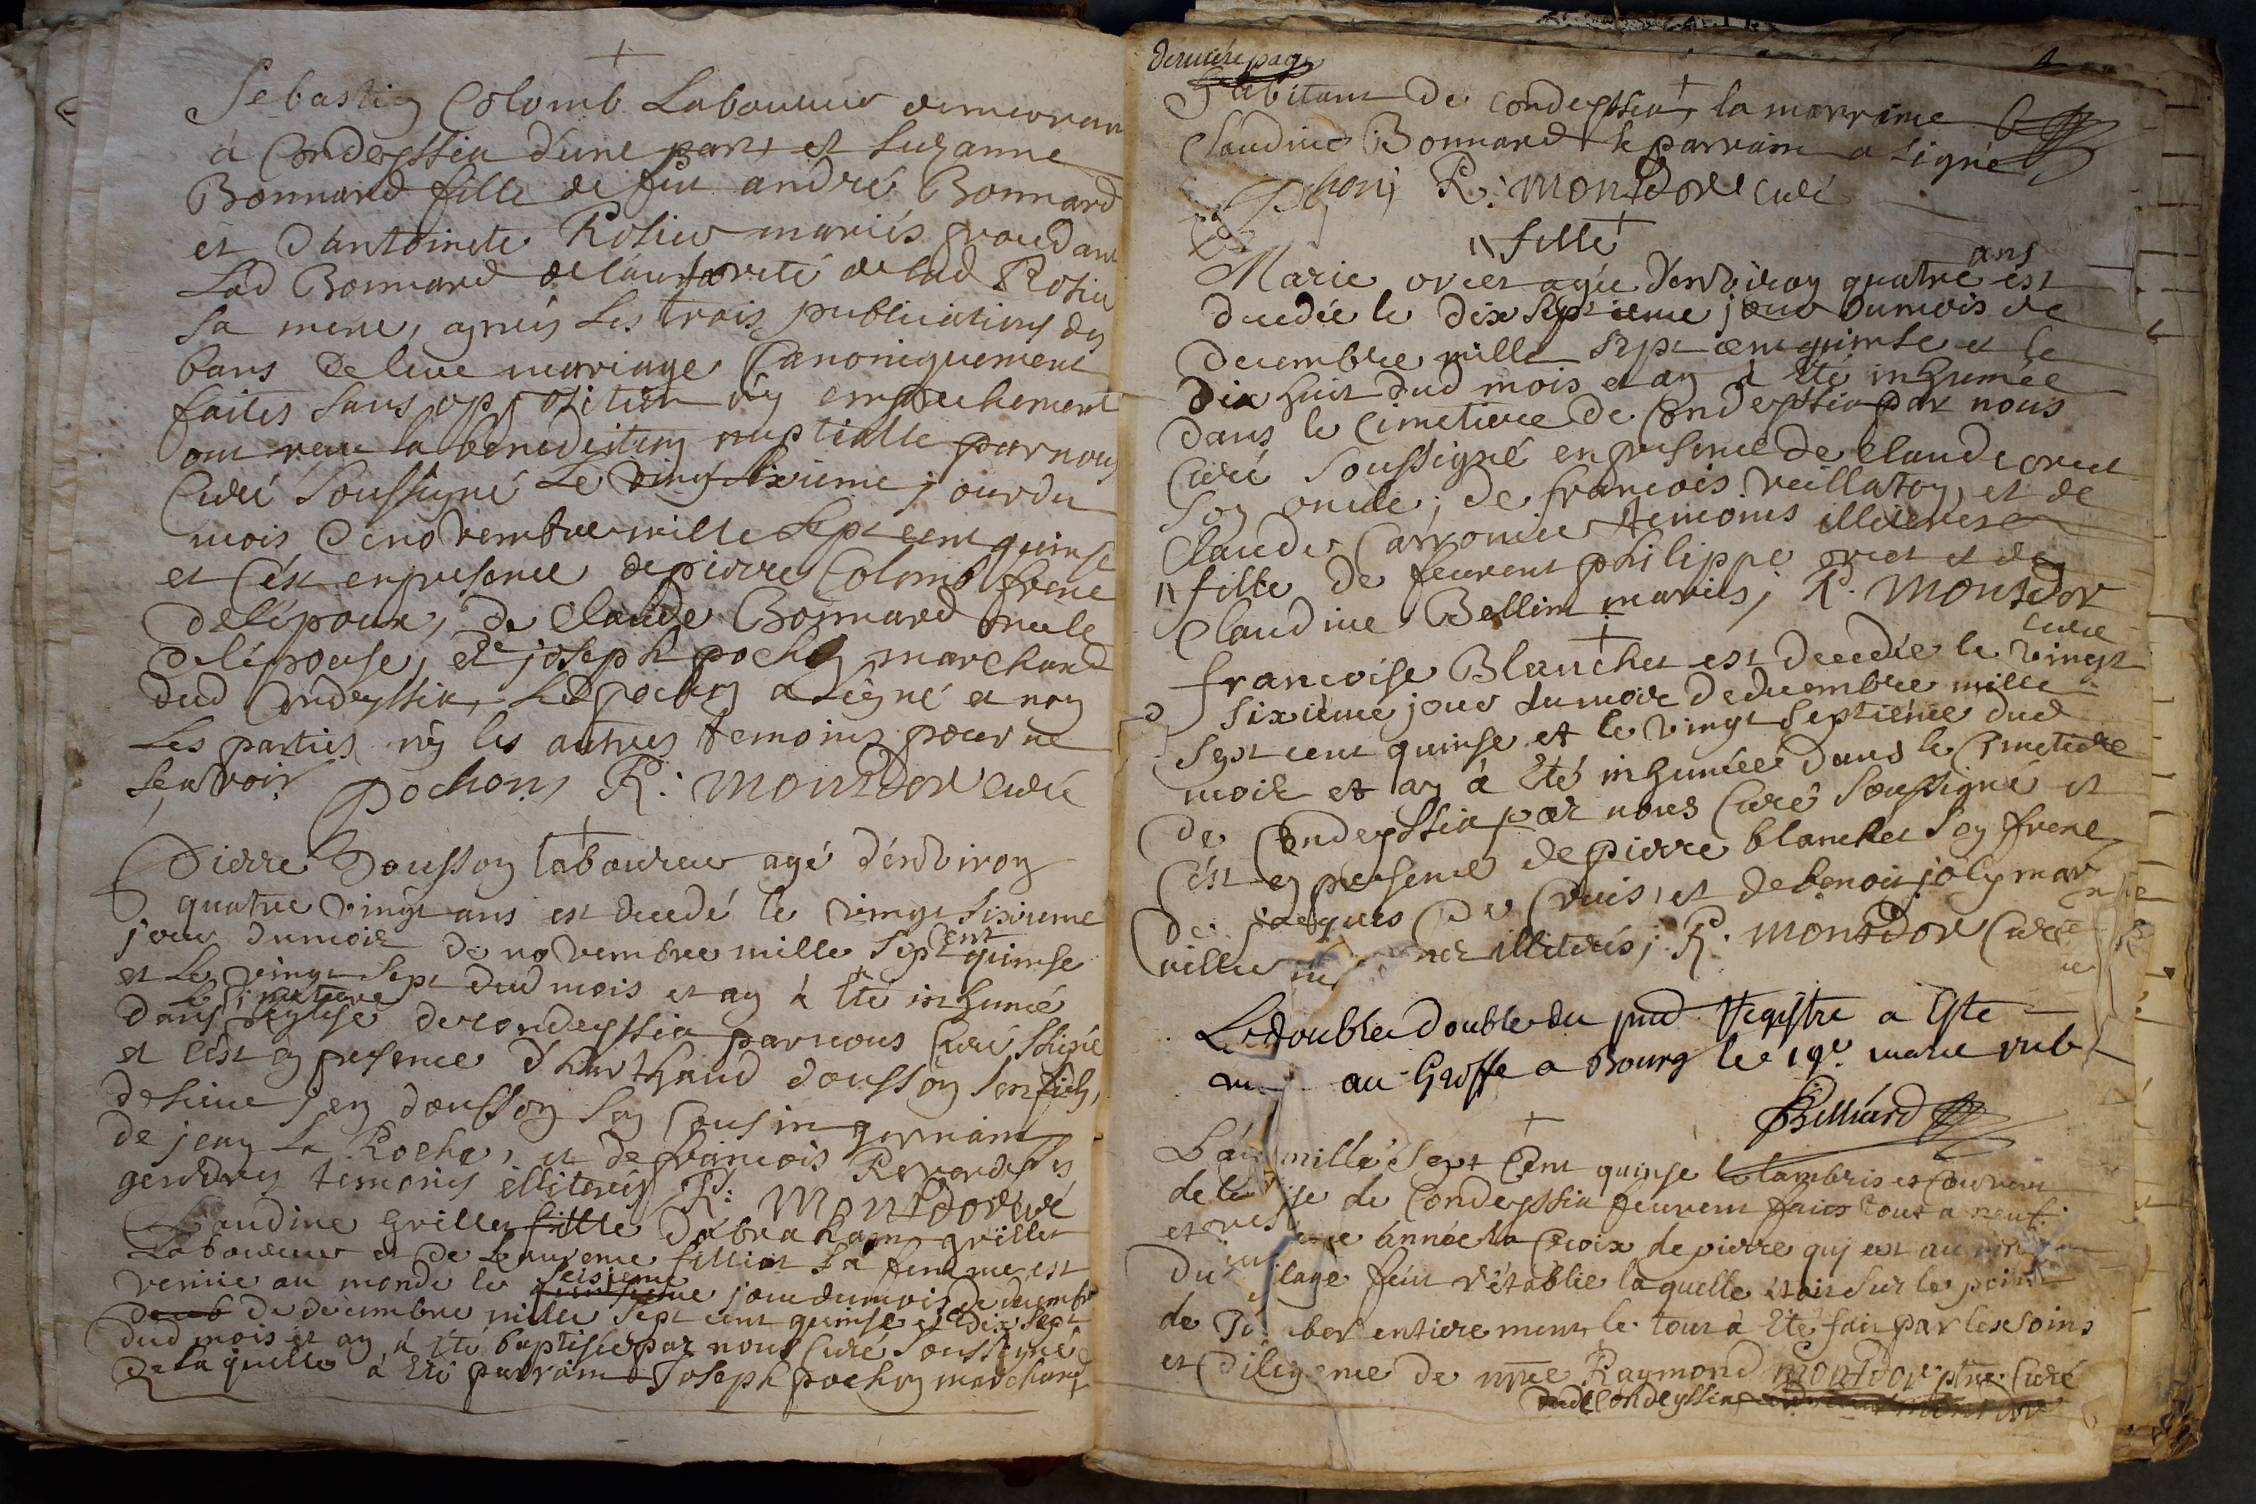 Sebastien Colomb Laboureur demeurant
à Condeyssia d'une part et Suzanne
Bonnard fille de feu andré Bonnard
et d'antoinete Rosier mariés procedant
Lad Bonnard de l'autorité de lad Rosier
sa mere, aprés Les trois publications des
bans de leur mariage Canoniquement
faites sans opposition ny empechement
ont receu la benediction nuptialle par nous
Curé Soussigné Le vingt sixieme jour du
mois de novembre mille sept cent quinse
et c'est en presence de pierre Colomb frere
de l'époux, de Claude Bonnard oncle
de l'épouse, et de joseph pochon marchand
dud Condeyssia, Led pochon a signé et non
les parties ny les autres temoins pour ne
scavoir
Pochon R: Montdor curé
Pierre Dousson laboureur agé d'environ
quatre vingt ans est decedé le vingt sixieme
jour du mois de novembre mille sept cent quinse
et le vingt sept dud mois et an à été inhumé
dans le cimetiere de condeyssia par nous Curé
et c'est en presence d'heu dousson son fils,
dousson son cousin germain
de jean La Roche, et de françois
gendres temoins illiterés R: Montdor curé
Claudine Grillet fille d'abraham grillet
Laboureur et de Laurence fillion sa femme est
venüe au monde le seisieme jour du mois de decembre
de decembre mille sept cent quinse et dix sept
dud mois et an, à été baptisée par nous Curé Soussigné
de laquelle à été parrain Joseph pochon marchand
derniere page
habitant de condeyssia, la marraine
Claudine Bonnard le parrain a signé
Pochon R: Montdor curé
\\ fille
Marie orcet agée d'environ quatre ans est
decedée le dix septieme jour du mois de
decembre mille sept cent quinse et le
dix huit dud mois et an à été inhumée
dans le cimetiere de Condeyssia par nous
Curé Soussigné en presence de Claude orcet
son oncle, de francois veillaton, et de
Claude Carronier temoins illiteres
\\ fille de feurent philippe orcet et de
Claudine Bellin mariés; R. Montdor
curé
francoise Blanchet est decedée le vingt
sixiéme jour du mois de decembre mille
sept cent quinse et le vingt septiéme dud
mois et an à été inhumée dans le Cimetiere
de Condeyssia par nous Curé Soussigné et
c'est en presence de pierre blanchet son frere
de jaques Cruis, et de benoit joly mar
illiterés; R. Montdor Curé
Le double du pnt Registre a esté
au Greffe a Bourg le 19e mars
Billiard
L'an mille sept Cent quinse le lambris et Couvert
de l'eglise de Condeyssia feurent faits tout a neuf
et année la Croix de pierre qui est au
du village feut rétablie laquelle étoit sur le point
de tomber entierement, le tout à été fait par les soins
et diligence de mre Raymond Montdor ptre Curé
dud Condeyssia